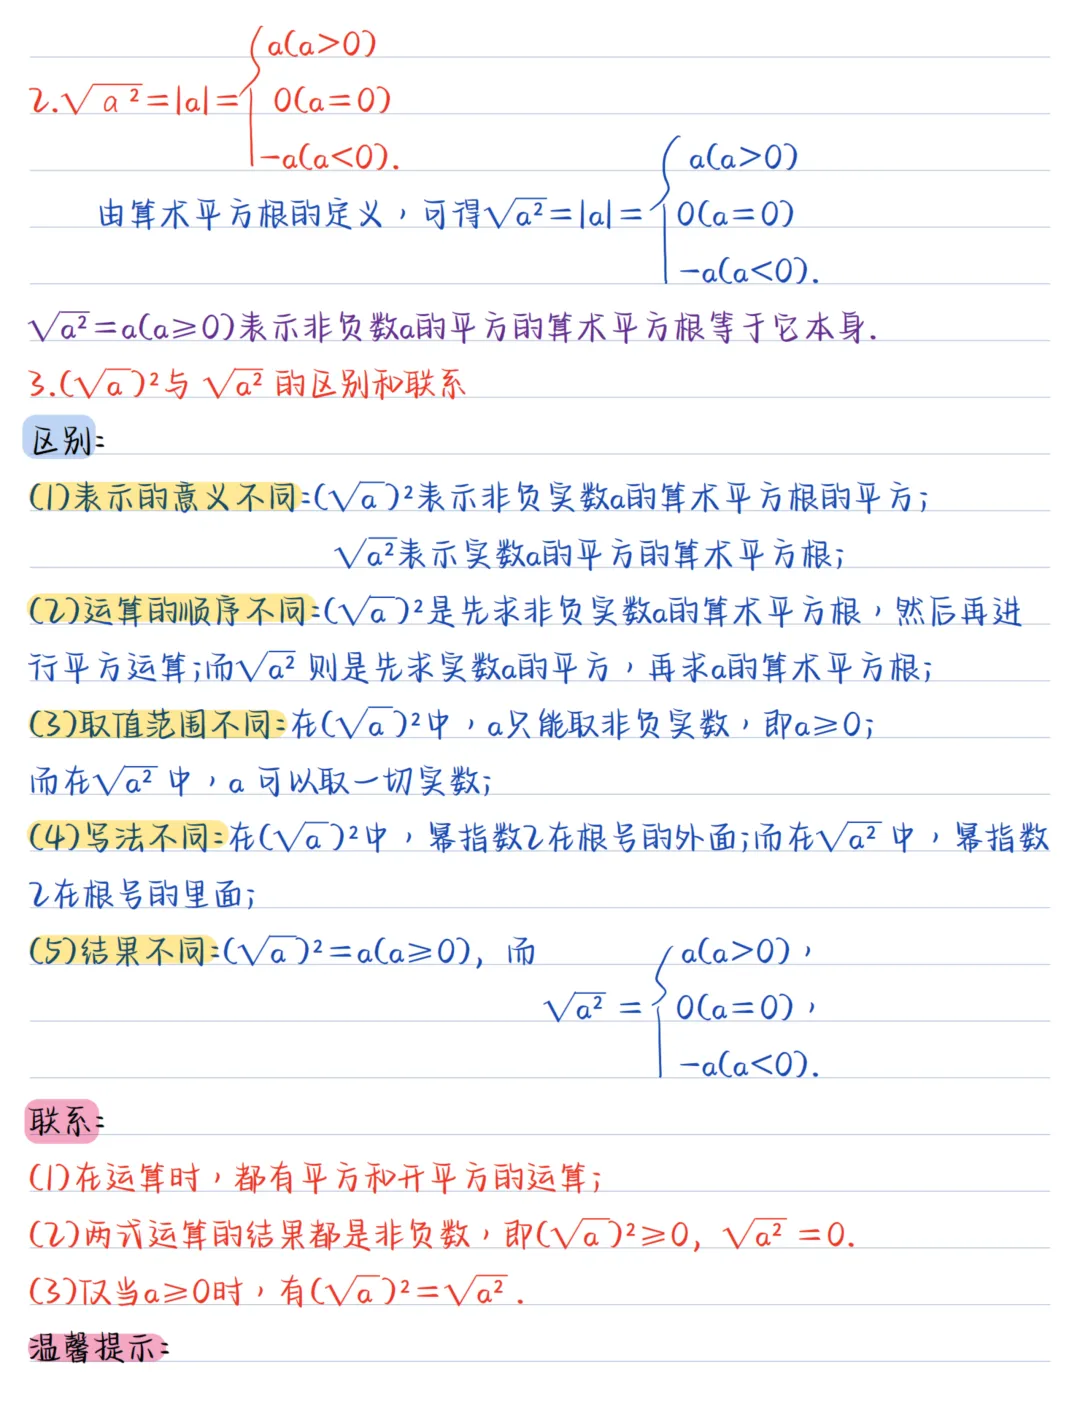 a(a>0)
2.√a²=|a|= 0(a=0)
-a(a<0).
a(a>0)
由算术平方根的定义，可得√a²=|a|= 0(a=0)
-a(a<0).
√a²=a(a≥0)表示非负数a的平方的算术平方根等于它本身.
3.(√a)²与 √a² 的区别和联系
区别:
(1)表示的意义不同:(√a)²表示非负实数a的算术平方根的平方;
√a²表示实数a的平方的算术平方根;
(2)运算的顺序不同:(√a)²是先求非负实数a的算术平方根，然后再进
行平方运算;而√a² 则是先求实数a的平方，再求a的算术平方根;
(3)取值范围不同:在(√a)²中，a只能取非负实数，即a≥0;
而在√a² 中，a 可以取一切实数;
(4)写法不同:在(√a)²中，幂指数2在根号的外面;而在√a² 中，幂指数
2在根号的里面;
(5)结果不同:(√a)²=a(a≥0), 而
a(a>0)，
√a² = 0(a=0)，
-a(a<0).
联系:
(1)在运算时，都有平方和开平方的运算;
(2)两式运算的结果都是非负数，即(√a)²≥0, √a² =0.
(3)仅当a≥0时，有(√a)²=√a².
温馨提示: